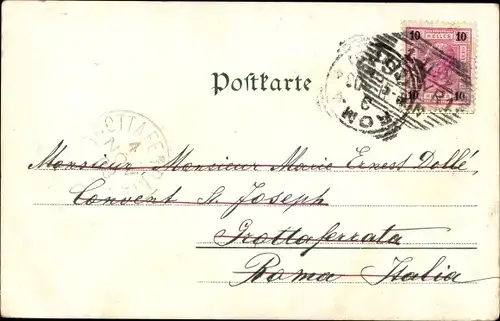 10 HELLER 10
10 10
Postkarte
ROMA
Monsieur, Monsieur Marie Ernest Dollé,
Convent St. Joseph
Grottaferrata
Roma Italia